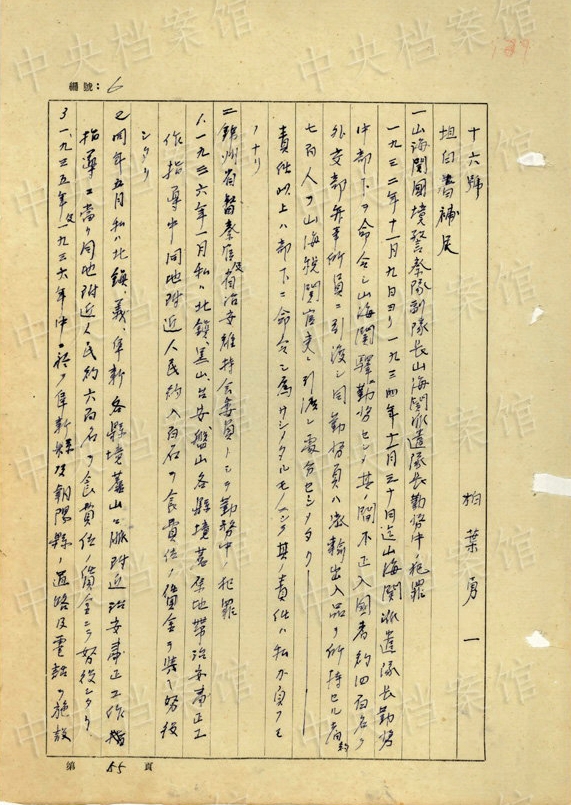 編號：6
十六號
坦白書補足
柏葉勇一
一 山海関国境警察隊副隊長山海関派遣隊長勤務中ノ犯罪
一九三二年十一月九日ヨリ一九三四年十一月三十日迄山海関派遣隊長勤務
中部下ヲ命令シ山海関驛勤務セシメ其ノ間不正入国者約四百名ヲ
外交部弁事所員ニ引渡シ同勤務員ハ密輸出入品ヲ所持セル者約
七百人ヲ山海税関官吏ニ引渡シ處分セシメタリ
責任以上ハ部下ニ命令シ為サシメタルモノニシテ其ノ責任ハ私カ負フモ
ノナリ
二 錦州省警察官及省治安維持会委員トシテ勤務中ノ犯罪
1. 一九三六年一月私ハ北鎮、黒山、台安、盤山各縣境葦集地帯治安粛正工
作指導中同地附近人民約八百名ヲ食費位ノ賃金ヲ與ヘ努役
シタリ
2 同年五月私ハ北鎮、義、阜新各縣境蓋山山脈附近治安粛正工作指
指導ニ當リ同地附近人民約六百名ヲ食費位ノ賃金ニテ努役シタリ
3 一九三五年及一九三六年中ニ於テ阜新縣及朝陽縣ノ道路及電話ヲ施設
第 55 頁
中央档案馆